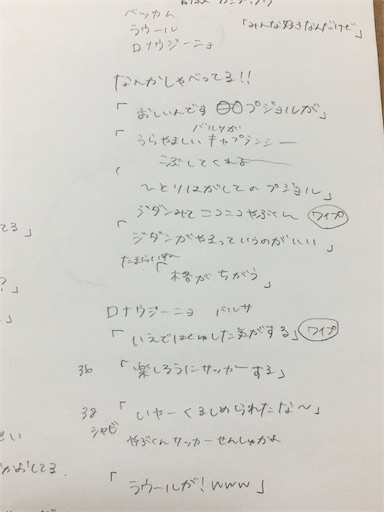 ベッカム
ラウール 「みんな好きなんだけど」
ロナウジーニョ
なんかしゃべってる!!
「おしいんです 〇〇プジョルが」
バルサが
うらやましい キャプテンシー
こぶしてくれよ
ひとりはがしての プジョル」
ジダンみて ニコニコ やぶくん ワイプ
「ジダンがやるっていうのがいい」
「格がちがう」
ロナウジーニョ バルサ
した気がする」 ワイプ
36 「楽しそうにサッカーする」
38 「いやーくるしめられたな〜」
シャビ
やぶくん サッカーせんしゅかよ
「ラウールが!www」
てる」
?」